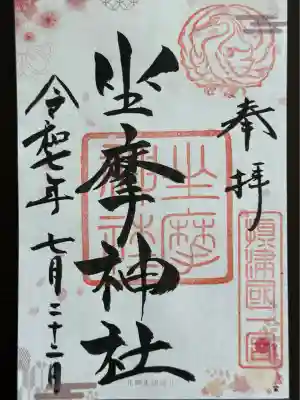 奉拝
摂津国一宮
坐摩神社
坐摩神社
令和七年 七月二十二日